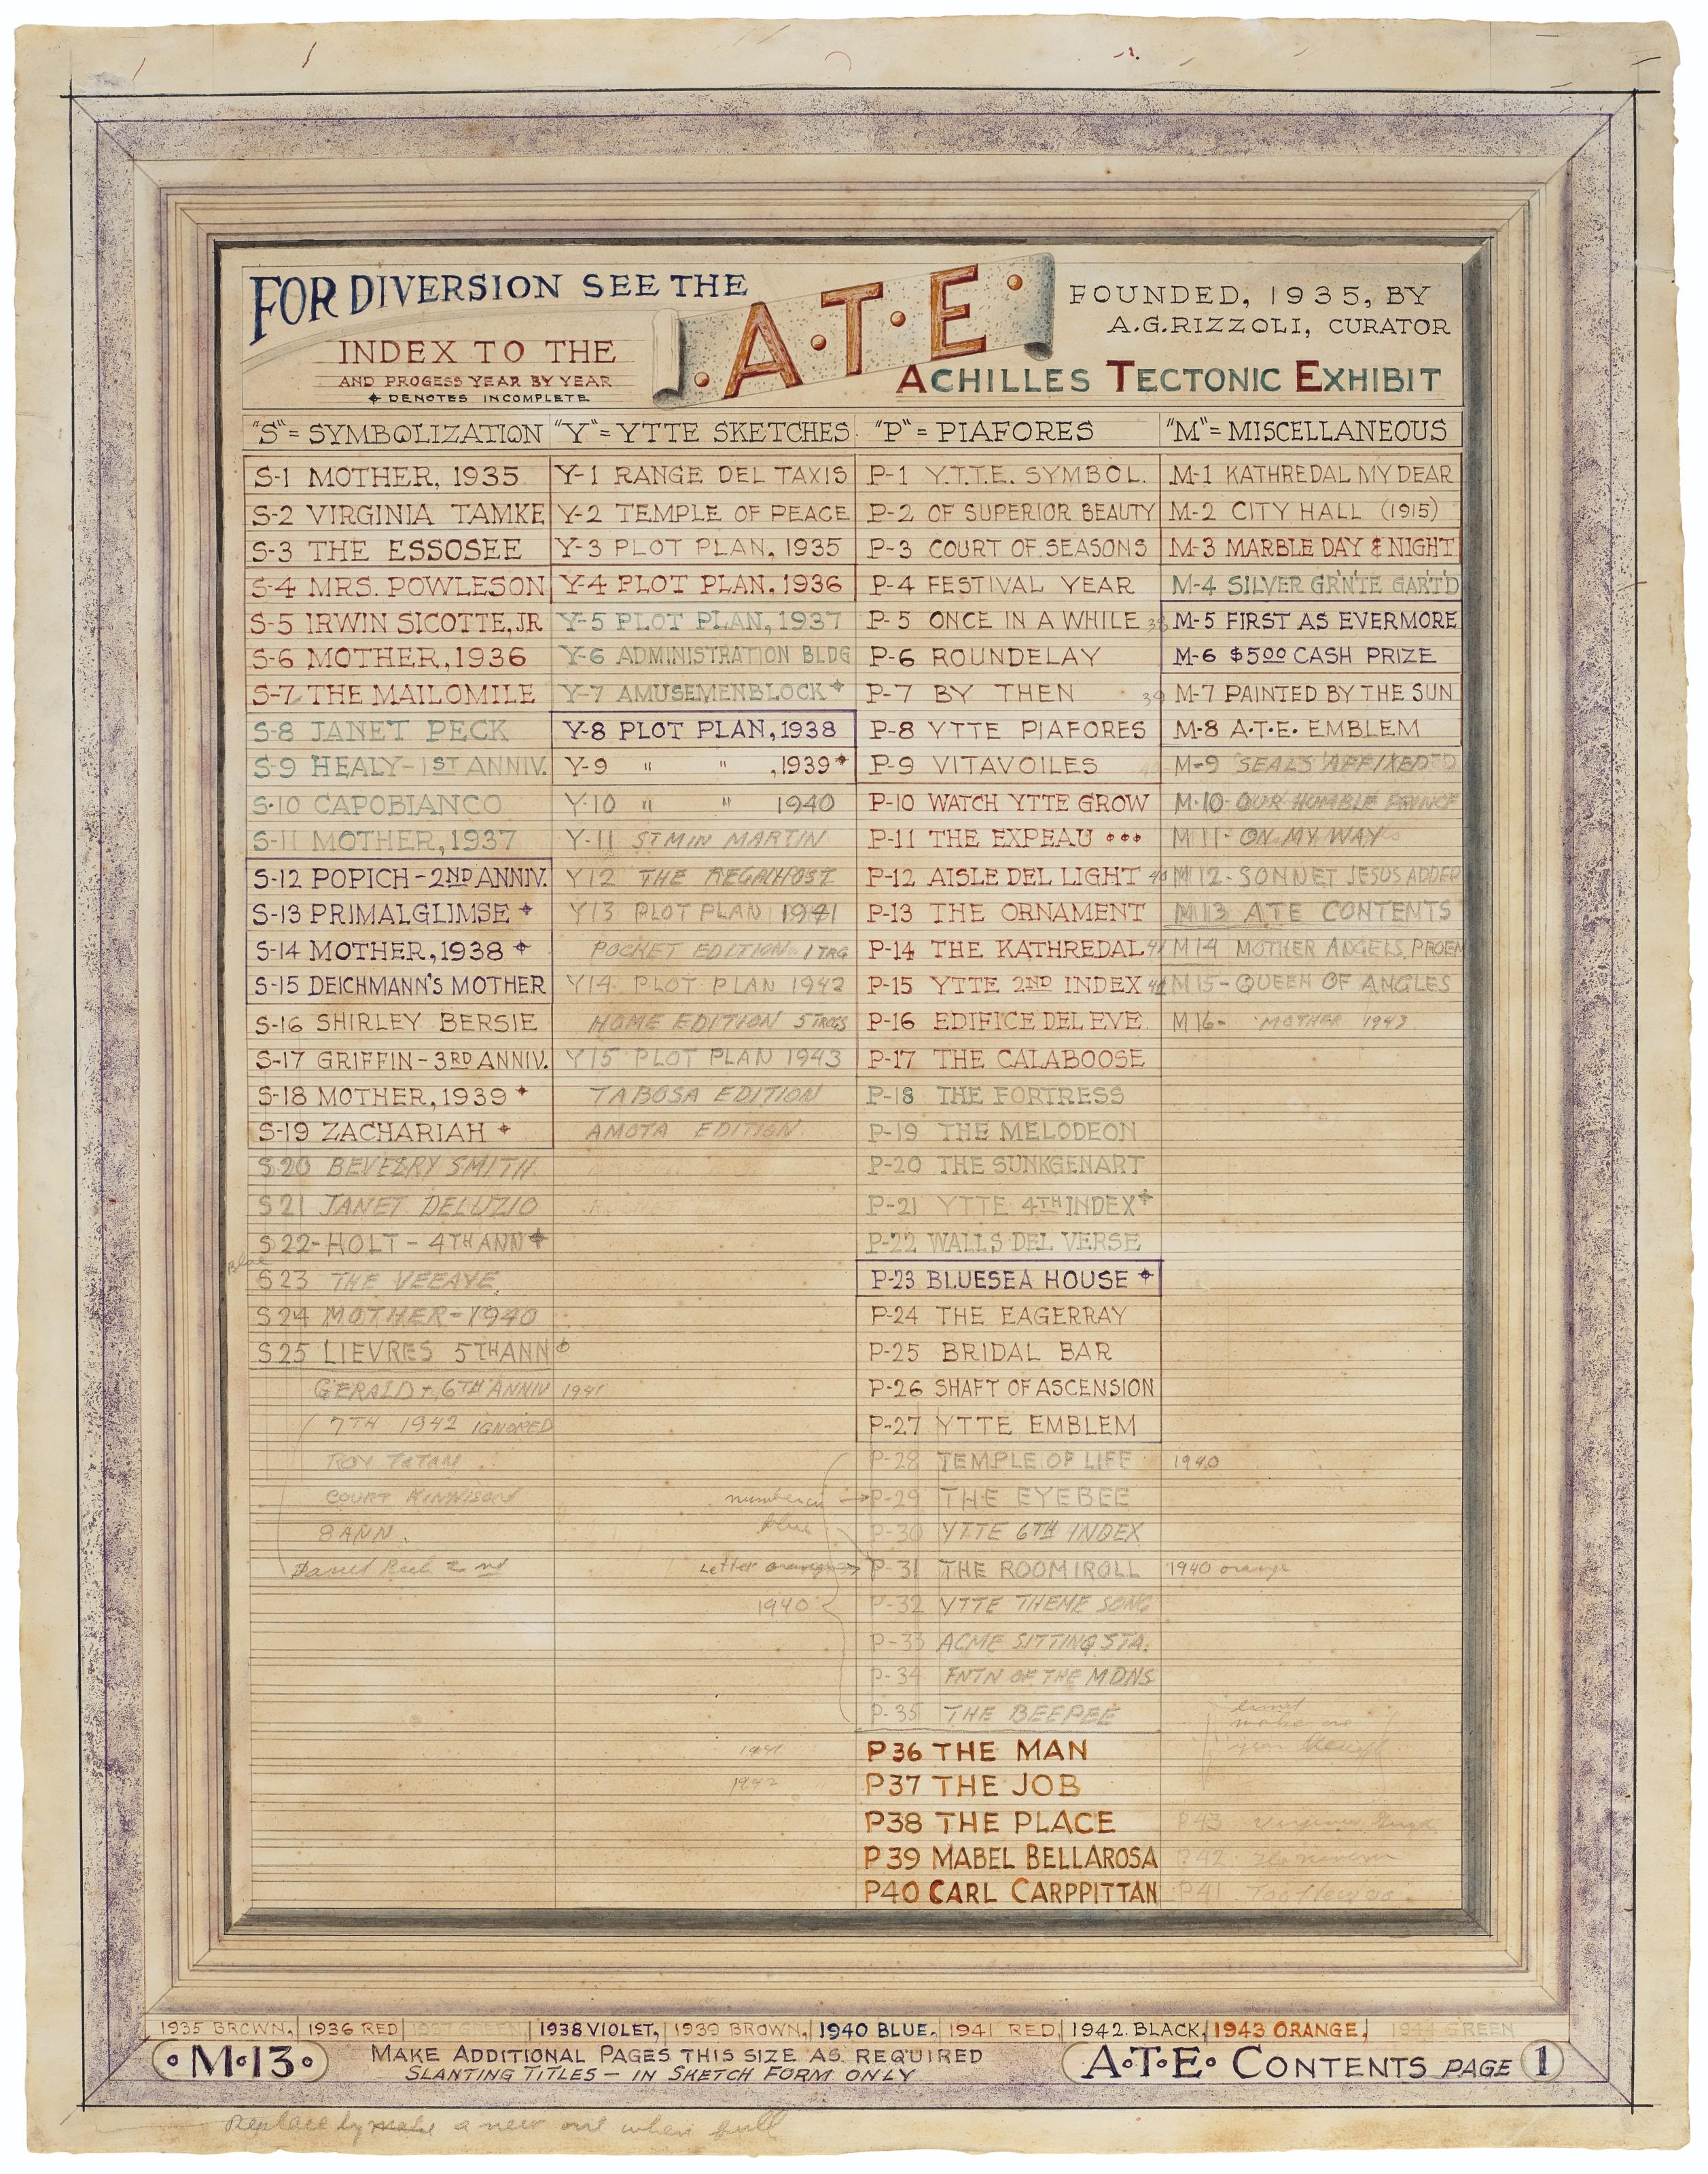 FOR DIVERSION SEE THE
INDEX TO THE
AND PROGESS YEAR BY YEAR
✦ DENOTES INCOMPLETE
·A·T·E·
FOUNDED, 1935, BY
A.G.RIZZOLI, CURATOR
ACHILLES TECTONIC EXHIBIT
"S" = SYMBOLIZATION
S-1 MOTHER, 1935
S-2 VIRGINIA TAMKE
S-3 THE ESSOSEE
S-4 MRS. POWLESON
S-5 IRWIN SICOTTE, JR
S-6 MOTHER, 1936
S-7 THE MAILOMILE
S-8 JANET PECK
S-9 HEALY-1ST ANNIV.
S-10 CAPOBIANCO
S-11 MOTHER, 1937
S-12 POPICH-2ND ANNIV.
S-13 PRIMALGLIMSE ✦
S-14 MOTHER, 1938 ✦
S-15 DEICHMANN'S MOTHER
S-16 SHIRLEY BERSIE
S-17 GRIFFIN-3RD ANNIV.
S-18 MOTHER, 1939 ✦
S-19 ZACHARIAH ✦
S20 BEVELRY SMITH
S21 JANET DELUZIO
S22-HOLT-4TH ANN ✦
Blue
S23 THE VEEAYE
S24 MOTHER-1940
S25 LIEVRES 5TH ANN ✦
GERALD 6TH ANNIV 1941
7TH 1942 IGNORED
ROY
COURT
8 ANN.
2nd
"Y" = YTTE SKETCHES
Y-1 RANGE DEL TAXIS
Y-2 TEMPLE OF PEACE
Y-3 PLOT PLAN, 1935
Y-4 PLOT PLAN, 1936
Y-5 PLOT PLAN, 1937
Y-6 ADMINISTRATION BLDG
Y-7 AMUSEMENBLOCK ✦
Y-8 PLOT PLAN, 1938
Y-9 " " , 1939 ✦
Y-10 " " 1940
Y-11 ST MIN MARTIN
Y12 THE REGALHOST
Y13 PLOT PLAN 1941
POCKET EDITION 1 TRG
Y14 PLOT PLAN 1942
HOME EDITION 5 TRGS
Y15 PLOT PLAN 1943
TABOSA EDITION
AMOTA EDITION
number in
blue
Letter orange
1940
1941
1942
"P" = PIAFORES
P-1 Y.T.T.E. SYMBOL.
P-2 OF SUPERIOR BEAUTY
P-3 COURT OF SEASONS
P-4 FESTIVAL YEAR
P-5 ONCE IN A WHILE 38
P-6 ROUNDELAY
P-7 BY THEN 39
P-8 YTTE PIAFORES
P-9 VITAVOILES
P-10 WATCH YTTE GROW
P-11 THE EXPEAU
P-12 AISLE DEL LIGHT 40
P-13 THE ORNAMENT
P-14 THE KATHREDAL 41
P-15 YTTE 2ND INDEX
P-16 EDIFICE DEL EVE
P-17 THE CALABOOSE
P-18 THE FORTRESS
P-19 THE MELODEON
P-20 THE SUNKGENART
P-21 YTTE 4TH INDEX ✦
P-22 WALLS DEL VERSE
P-23 BLUESEA HOUSE ✦
P-24 THE EAGERRAY
P-25 BRIDAL BAR
P-26 SHAFT OF ASCENSION
P-27 YTTE EMBLEM
P-28 TEMPLE OF LIFE 1940
P-29 THE EYEBEE
P-30 YTTE 6TH INDEX
P-31 THE ROOMIROLL 1940 orange
P-32 YTTE THEME SONG
P-33 ACME SITTING STA.
P-34 FNTN OF THE MDNS
P-35 THE BEEPEE
P36 THE MAN
P37 THE JOB
P38 THE PLACE
P39 MABEL BELLAROSA
P40 CARL CARPPITTAN
"M" = MISCELLANEOUS
M-1 KATHREDAL MY DEAR
M-2 CITY HALL (1915)
M-3 MARBLE DAY & NIGHT
M-4 SILVER GR'N'TE GART'D
M-5 FIRST AS EVERMORE
M-6 $500 CASH PRIZE
M-7 PAINTED BY THE SUN
M-8 A·T·E· EMBLEM
M-9 SEALS AFFIXED
M-10- OUR HUMBLE PRINCE
M11- ON MY WAY
M12- SONNET JESUS ADDED
M13 ATE CONTENTS
M14 MOTHER ANGELS, PROEM
M15- QUEEN OF ANGLES
M16- MOTHER 1943
P43 Virginia
P42
P41
1935 BROWN, 1936 RED 1937 GREEN 1938 VIOLET, 1939 BROWN, 1940 BLUE, 1941 RED, 1942 BLACK, 1943 ORANGE, 1944 GREEN
·M·13·
MAKE ADDITIONAL PAGES THIS SIZE AS REQUIRED
SLANTING TITLES - IN SKETCH FORM ONLY
A·T·E· CONTENTS PAGE 1
Replace by make a new one when full